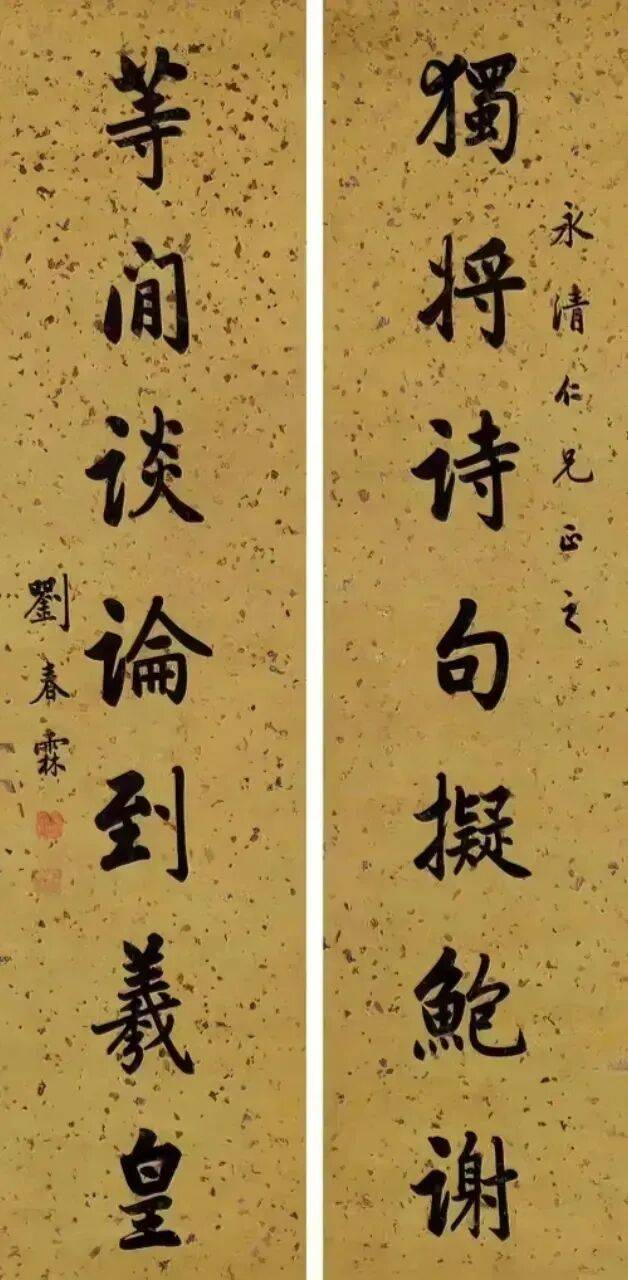 永清仁兄正之
獨將诗句擬鮑谢
等闲谈論到羲皇
劉春霖